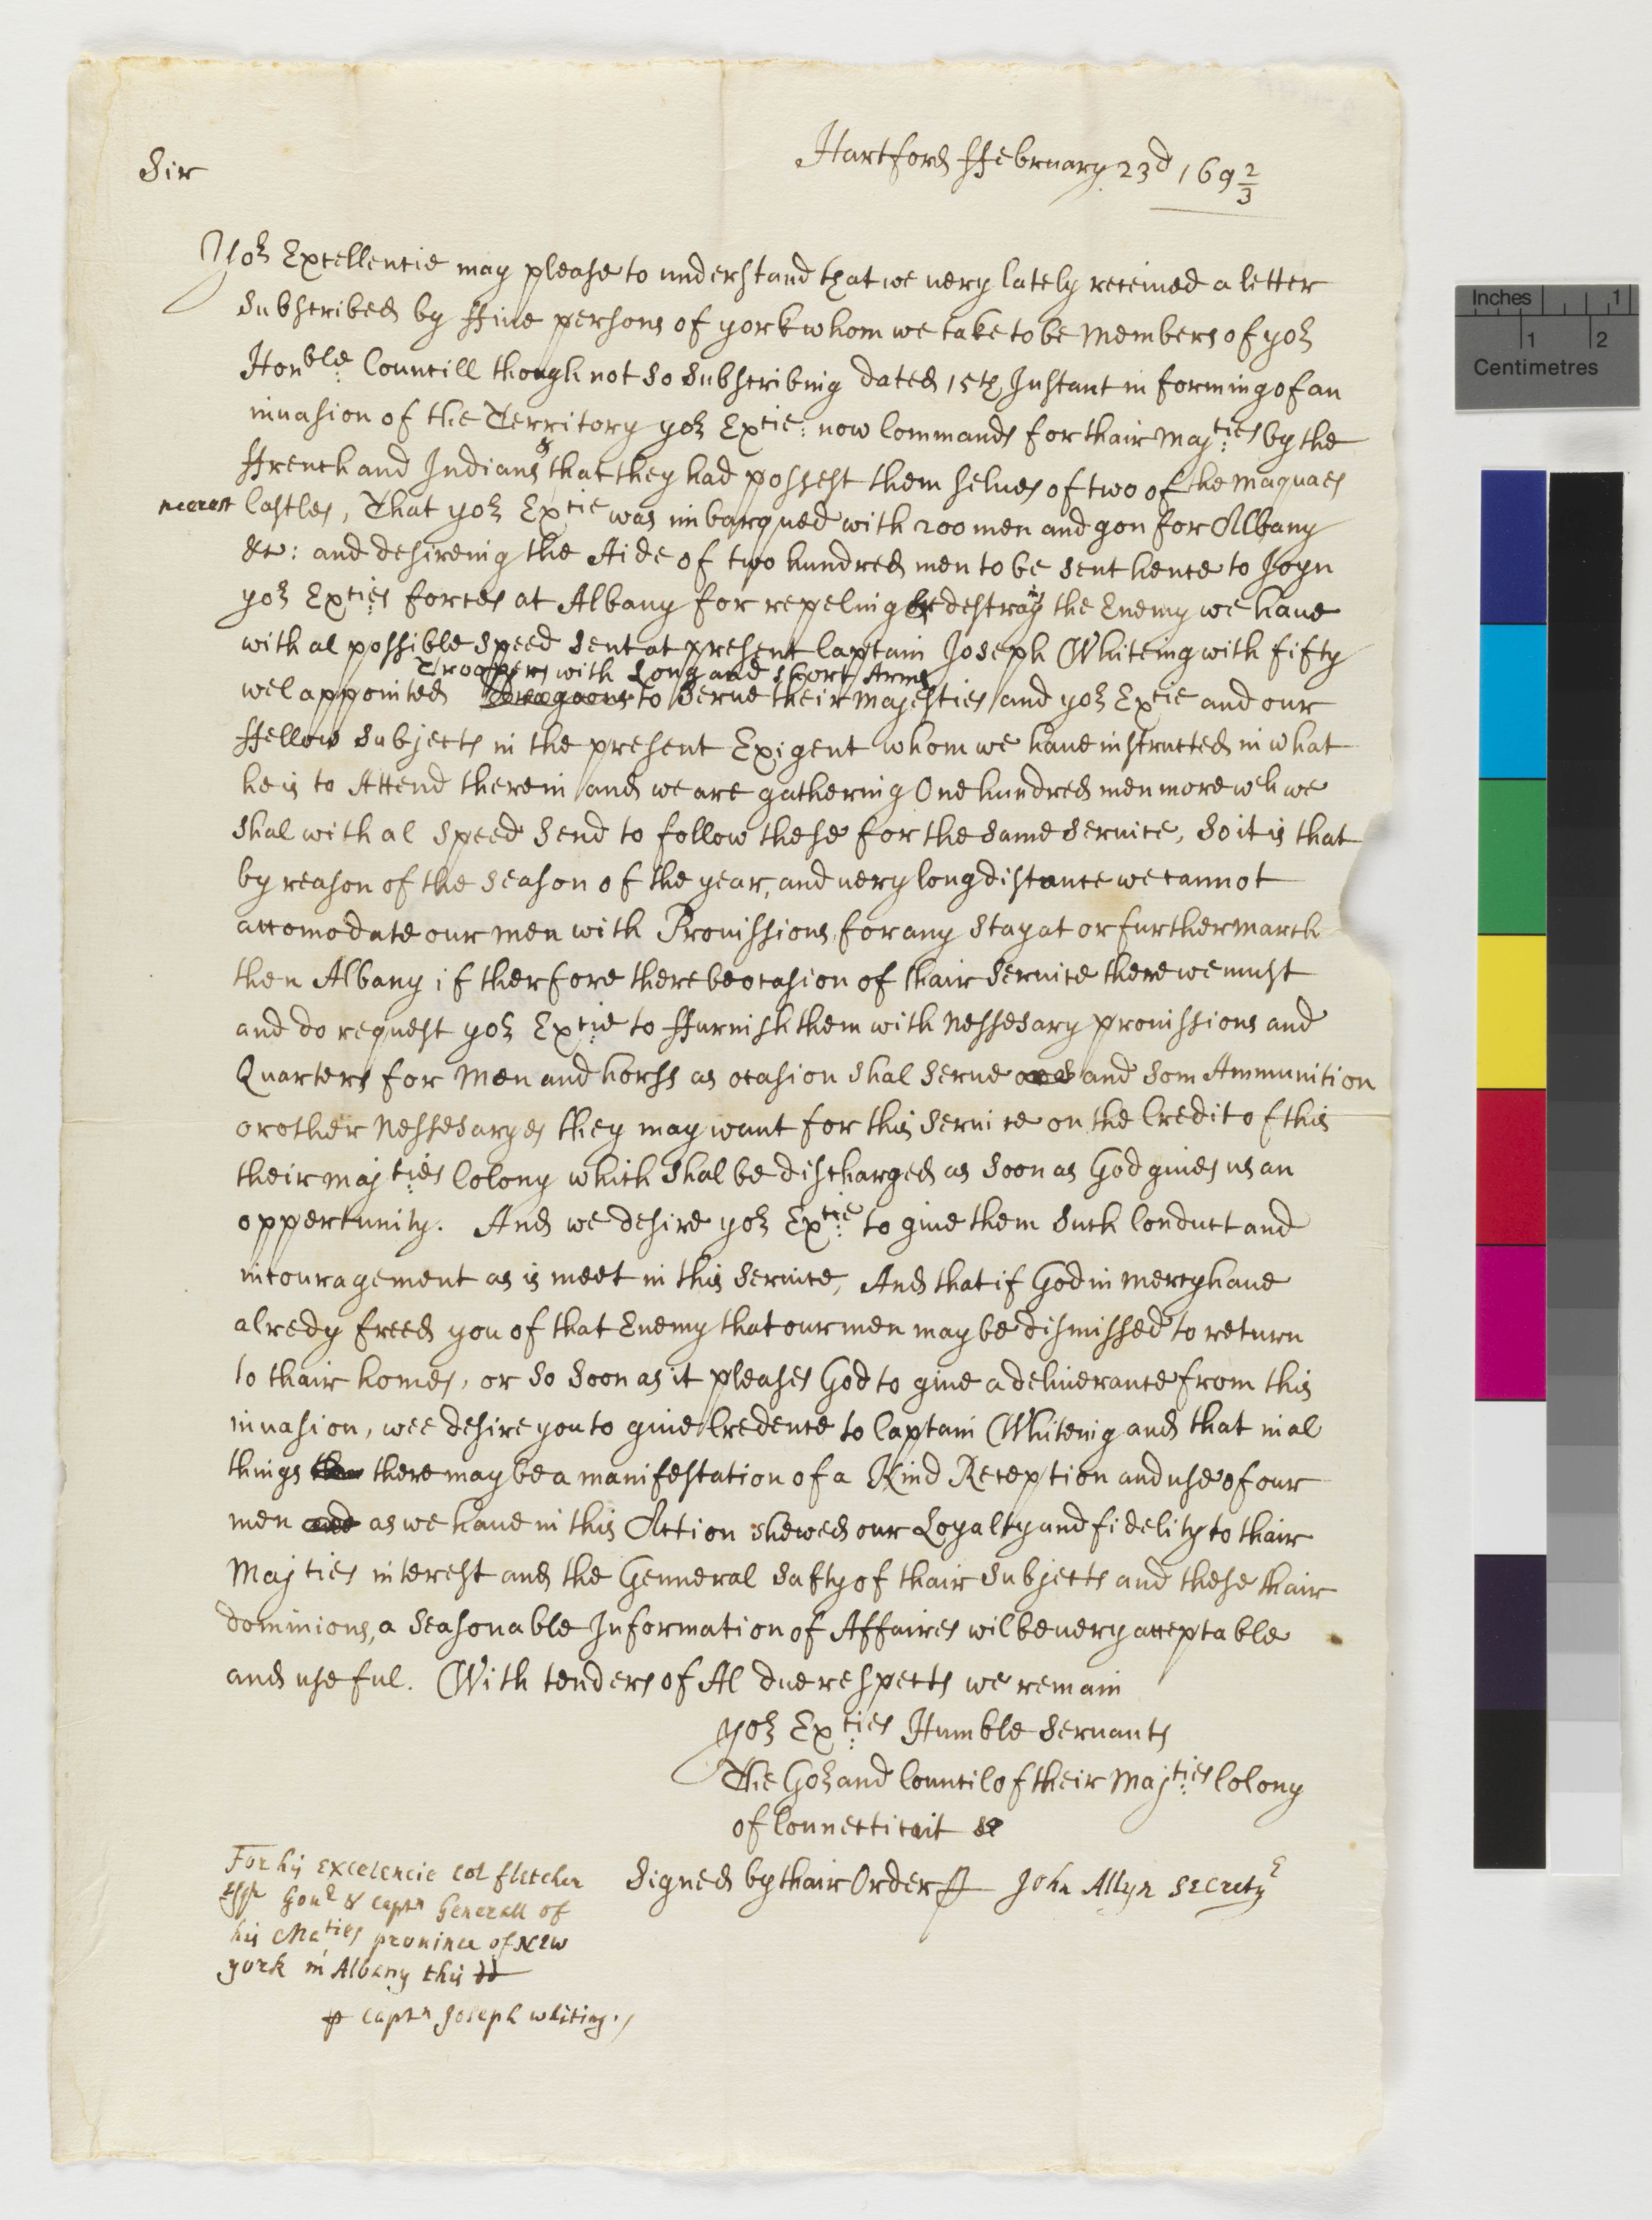 Hartford ffebruary 23d 169 2/3
Sir
Yor Excellencie may please to understand that we uery lately receiued a letter
subscribed by ffiue persons of york whom we take to be Members of yor
Honble Councill though not so subscribing dated 15th Instant informing of an
inuasion of the Territory yor Excie: now Commands for thair Majties by the
ffrench and Indians & that they had possest them selues of two of the Maquaes
neerest Castles, That yor Excie was imbarqued with 200 men and gon for Albany
&c: and desireing the Aide of two hundred men to be sent hence to Joyn
yor Excies forces at Albany for repeling & destroyg the Enemy we haue
with al possible speed sent at present Captain Joseph Whiteing with fifty
Troopers with Long and Short Arms
wel appointed Dragoons to serue their Majesties and yor Excie and our
ffellow subjects in the present Exigent whom we haue instructed in what
he is to Attend therein and we are gathering One hundred men more wch we
shal with al speed send to follow these for the same seruice, So it is that
by reason of the season of the year, and uery long distance we cannot
accomodate our men with Prouissions for any stay at or further march
then Albany if therfore there be ocasion of thair seruice there we must
and do request yor Excie to ffurnish them with nessesary prouissions and
Quarters for men and horss as ocasion shal serue and som Ammunition
or other nessesaryes they may want for this seruice on the Credit of this
their Majties Colony which shal be discharged as soon as God giues us an
oppertunity. And we desire yor Excie to giue them such Conduct and
incouragement as is meet in this seruice, And that if God in mercy haue
alredy freed you of that Enemy that our men may be dismissed to return
to thair homes, or so soon as it pleases God to giue a deliuerance from this
inuasion, wee desire you to giue Credence to Captain Whiteing and that in al
things there may be a manifestation of a Kind Reception and use of our
men as we haue in this Action shewed our Loyalty and fidelity to thair
Majties interest and the Genneral safty of thair subjects and these thair
dominions, a seasonable Information of Affaires wil be uery acceptable
and useful. With tenders of Al due respects we remain
yor Excies Humble Seruants
The Gor and Councilof their Majties Colony
of Connecticut
Signed by thair Order p John Allyn Secrety
For his Excelencie Col fletcher
Esqr Gour & Captn Generall of
his Maties prouince of New
york in Albany this dd
p Captn Joseph whiting./
Inches 1
1 2
Centimetres